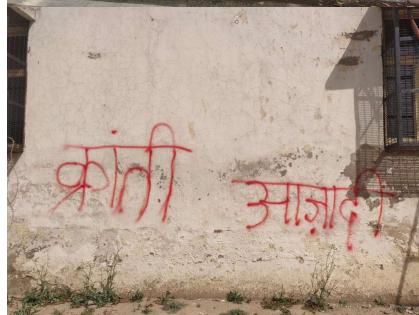 क्रांती आज़ादी